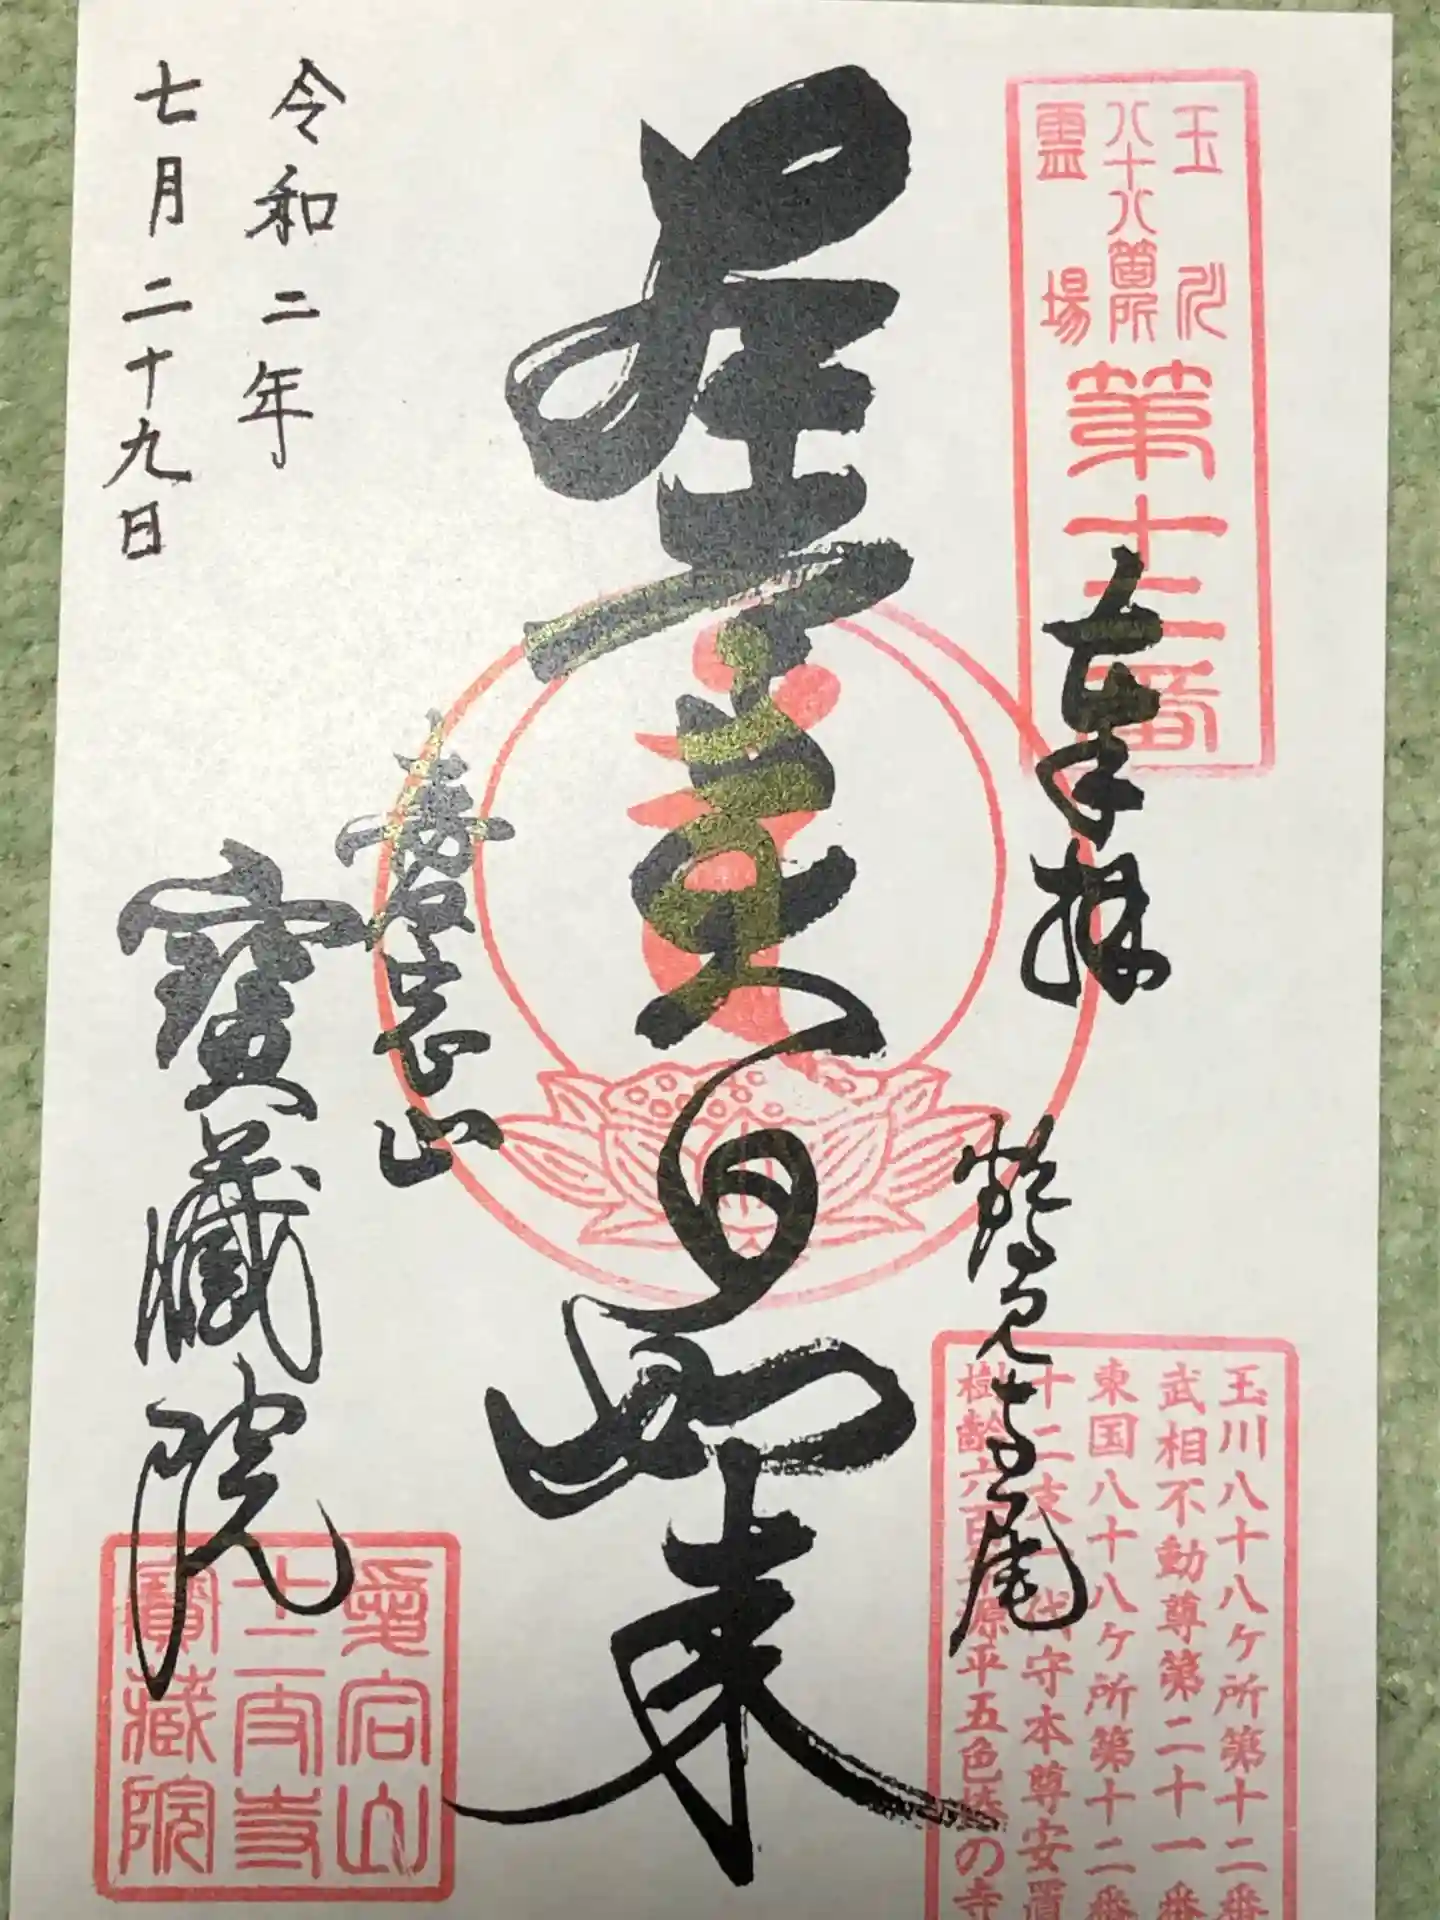 玉川
八十八箇所
霊場
第十二番
奉拝
鶴見寺尾
大日如来
愛宕山
寶藏院
令和二年
七月二十九日
玉川八十八ケ所第十二番
武相不動尊第二十一番
東国八十八ケ所第十二番
十二支一代守本尊安置
樹齢六百年源平五色椿の寺
愛宕山
寶藏院